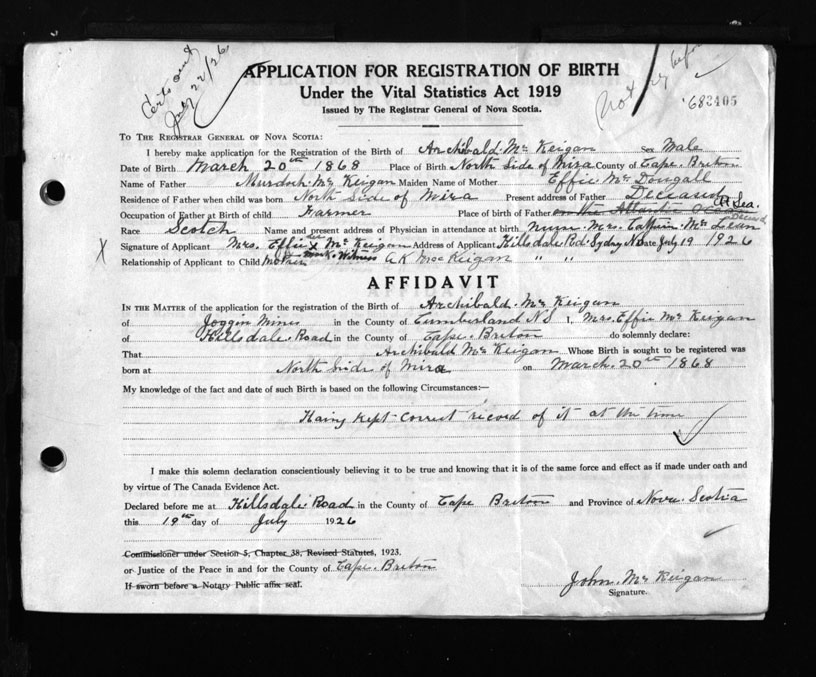 Certs sent
July 22/26
Not reg before
683405
APPLICATION FOR REGISTRATION OF BIRTH
Under the Vital Statistics Act 1919
Issued by The Registrar General of Nova Scotia.
TO THE REGISTRAR GENERAL OF NOVA SCOTIA:
I hereby make application for the Registration of the Birth of Archibald Mc Keigan Sex Male
Date of Birth March 20th 1868 Place of Birth North Side of Mira County of Cape Breton
Name of Father Murdoch Mc Keigan Maiden Name of Mother Effie Mc Dougall
Residence of Father when child was born North Side of Mira Present address of Father Deceased
Occupation of Father at Birth of child Farmer Place of birth of Father on the Atlantic At Sea.
Race Scotch Name and present address of Physician in attendance at birth nurse Mrs. Mc Lean Deceased
X Signature of Applicant Mrs. Effie her x Mc Keigan Address of Applicant Hillsdale Rd. Sydney NS Date July 19 1926
Relationship of Applicant to Child Mother mark. Witness A K MacKeigan " "
AFFIDAVIT
IN THE MATTER of the application for the registration of the Birth of Archibald Mc Keigan
of Joggin Mines in the County of Cumberland N S I, Mrs. Effie Mc Keigan
of Hillsdale Road in the County of Cape Breton do solemnly declare:
That Archibald Mc Keigan Whose Birth is sought to be registered was
born at North Side of Mira on March 20th 1868
My knowledge of the fact and date of such Birth is based on the following Circumstances:—
Having kept correct record of it at the time
I make this solemn declaration conscientiously believing it to be true and knowing that it is of the same force and effect as if made under oath and
by virtue of The Canada Evidence Act.
Declared before me at Hillsdale Road in the County of Cape Breton and Province of Nova Scotia
this 19th day of July 1926
Commissioner under Section 5, Chapter 38, Revised Statutes, 1923.
or Justice of the Peace in and for the County of Cape Breton
If sworn before a Notary Public affix seal.
John Mc Keigan
Signature.